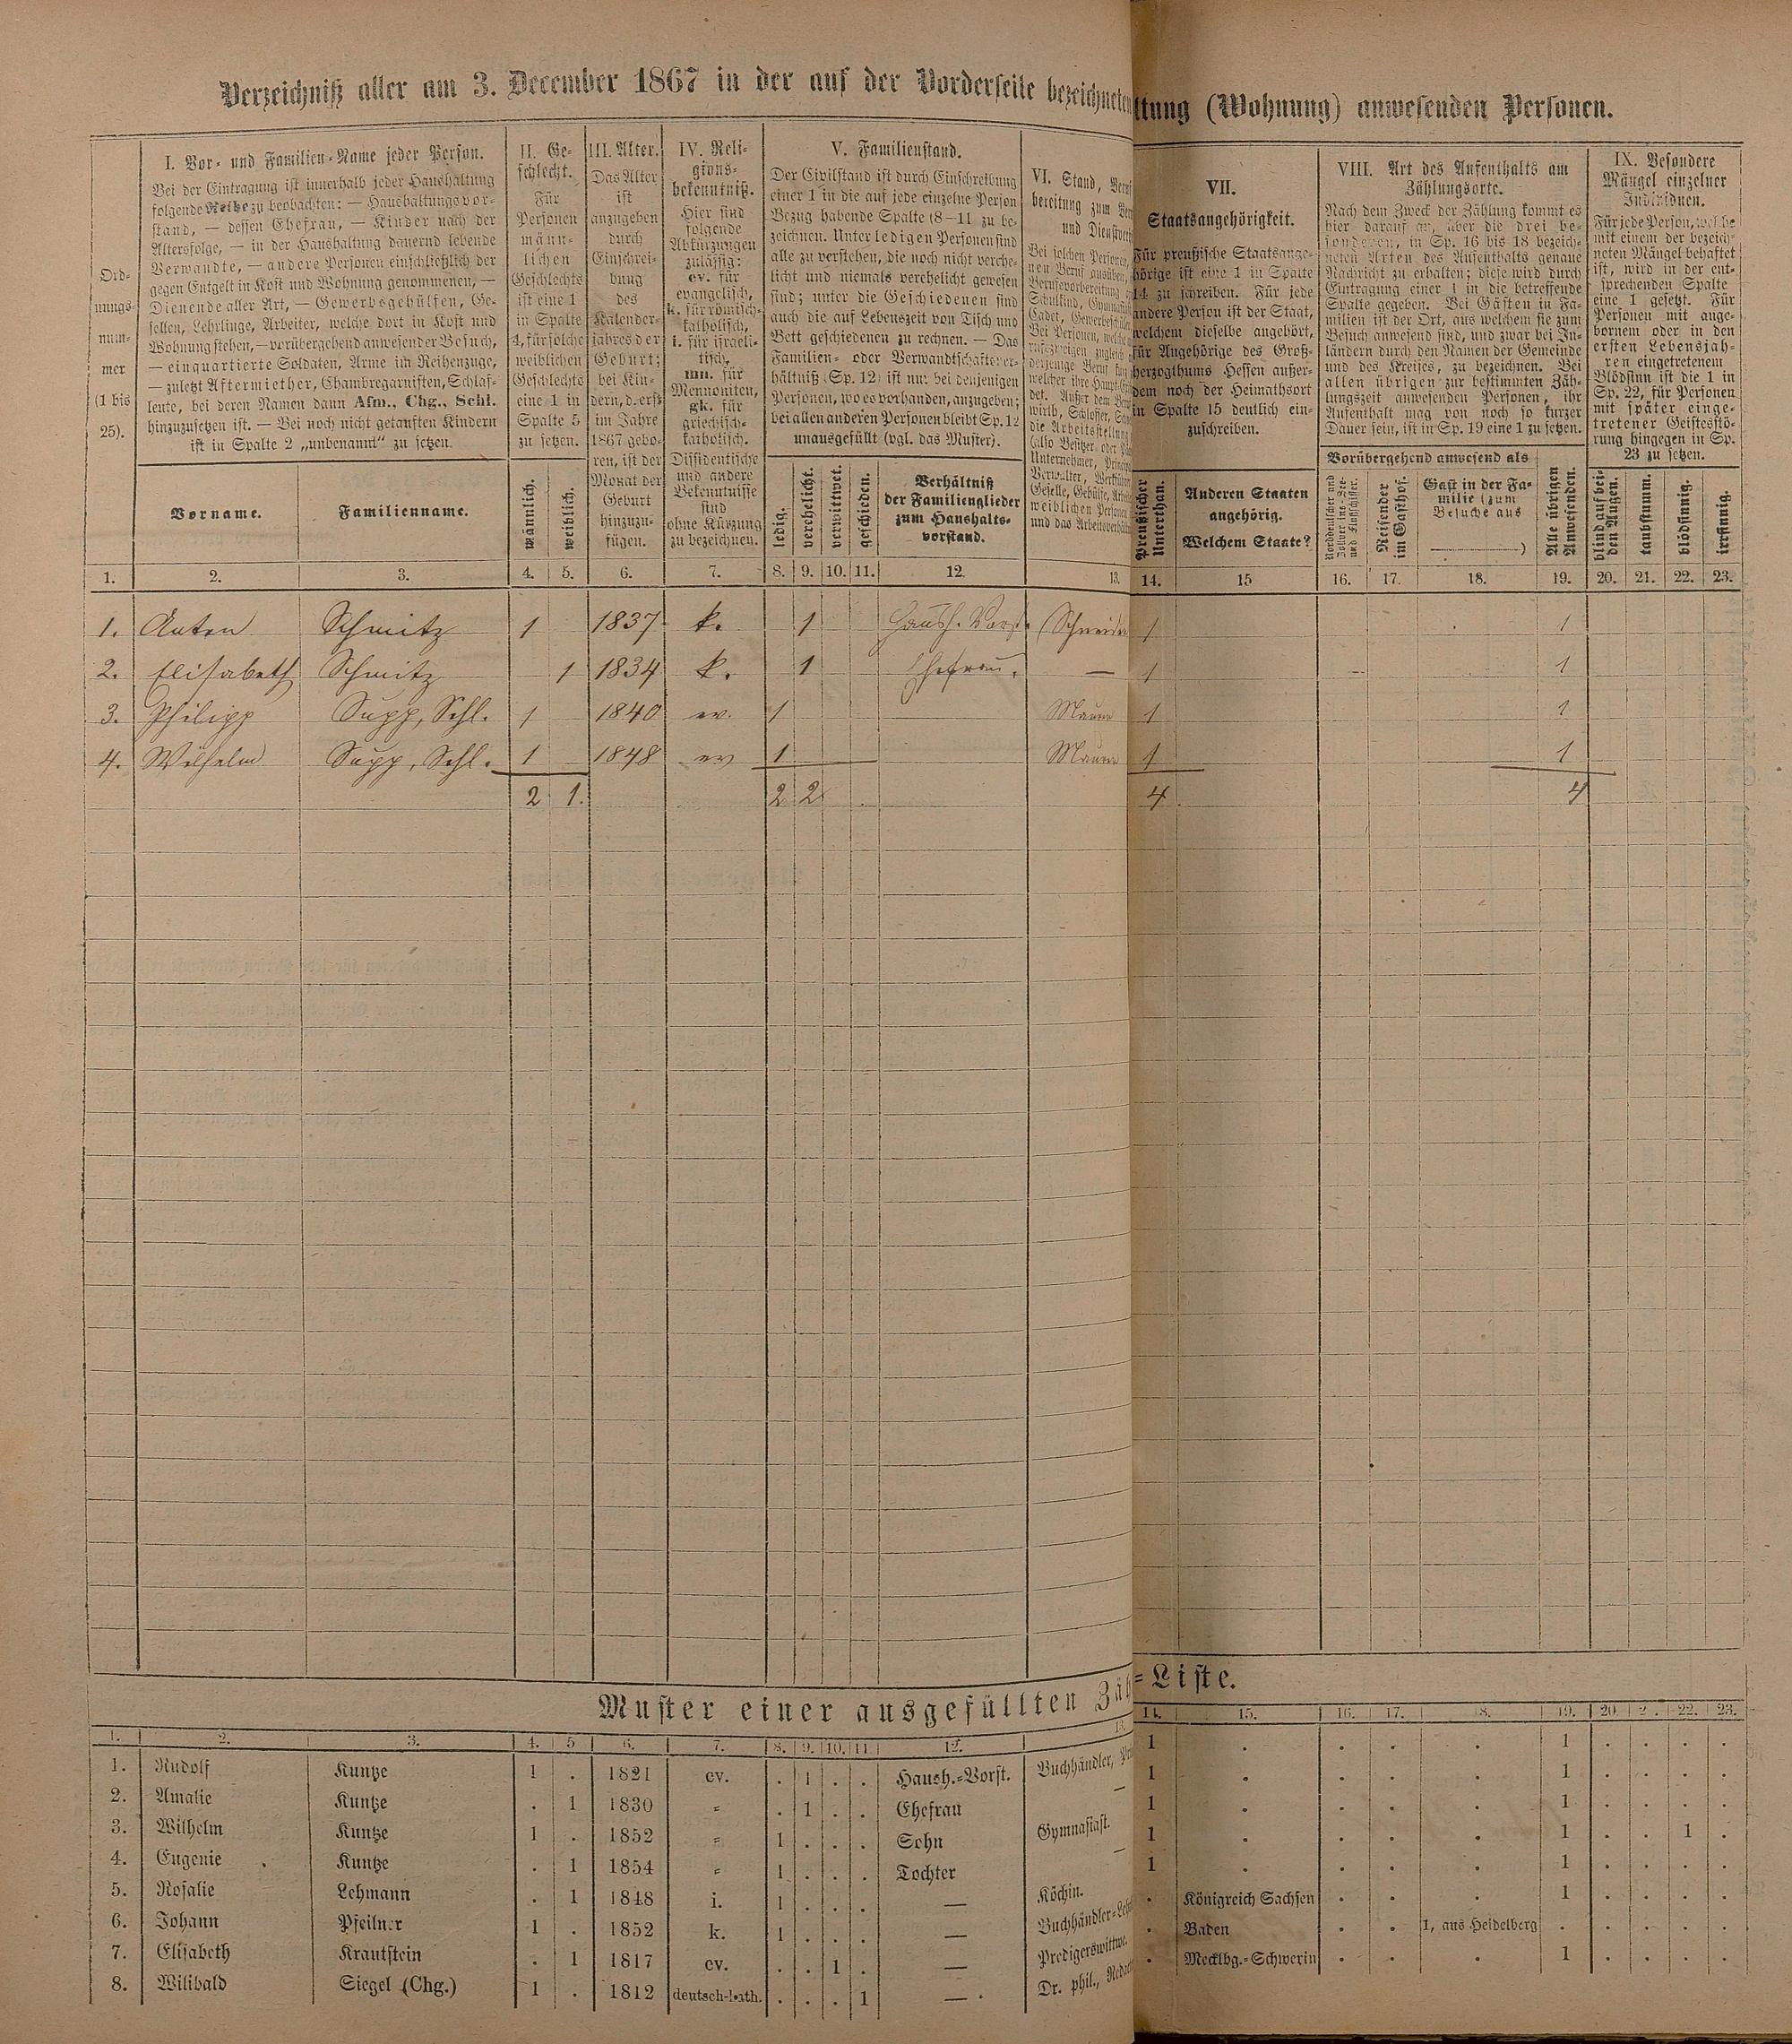 Verzeichniß aller am 3. December 1867 in der auf der Vorderseite bezeichneten
ltung (Wohnung) anwesenden Personen.
Ord-
nungs-
num-
mer
(1 bis
25).
I. Vor- und Familien-Name jeder Person.
Bei der Eintragung ist innerhalb jeder Haushaltung
folgende Reihe zu beobachten: — Haushaltungsvor-
stand, — dessen Ehefrau, — Kinder nach der
Altersfolge, — in der Haushaltung dauernd lebende
Verwandte, — andere Personen einschließlich der
gegen Entgelt in Kost und Wohnung genommenen, —
Dienende aller Art, — Gewerbsgehülfen, Ge-
sellen, Lehrlinge, Arbeiter, welche dort in Kost und
Wohnung stehen, — vorübergehend anwesender Besuch,
— einquartierte Soldaten, Arme im Reihenzuge,
— zuletzt Aftermiether, Chambregarnisten, Schlaf-
leute, bei deren Namen dann Afm., Chg., Schl.
hinzuzusetzen ist. — Bei noch nicht getauften Kindern
ist in Spalte 2 „unbenannt“ zu setzen.
Vorname.
Familienname.
II. Ge-
schlecht.
Für
Personen
männ-
lichen
Geschlechts
ist eine 1
in Spalte
4, für solche
weiblichen
Geschlechts
eine 1 in
Spalte 5
zu setzen.
männlich.
weiblich.
III. Alter.
Das Alter
ist
anzugeben
durch
Einschrei-
bung
des
Kalender-
jahres der
Geburt;
bei Kin-
dern, d. erst
im Jahre
1867 gebo-
ren, ist der
Monat der
Geburt
hinzuzu-
fügen.
IV. Reli-
gions-
bekenntniß.
Hier sind
folgende
Abkürzungen
zulässig:
ev. für
evangelisch,
k. für römisch-
katholisch,
i. für israeli-
tisch,
mn. für
Mennoniten,
gk. für
griechisch-
katholisch.
Dissidentische
und andere
Bekenntnisse
sind
ohne Kürzung
zu bezeichnen.
V. Familienstand.
Der Civilstand ist durch Einschreibung
einer 1 in die auf jede einzelne Person
Bezug habende Spalte (8—11 zu be-
zeichnen. Unter ledigen Personen sind
alle zu verstehen, die noch nicht verehe-
licht und niemals verehelicht gewesen
sind; unter die Geschiedenen sind
auch die auf Lebenszeit von Tisch und
Bett geschiedenen zu rechnen. — Das
Familien- oder Verwandtschaftsver-
hältniß (Sp. 12) ist nur bei denjenigen
Personen, wo es vorhanden, anzugeben;
bei allen anderen Personen bleibt Sp. 12
unausgefüllt (vgl. das Muster).
ledig.
verehelicht.
verwittwet.
geschieden.
Verhältniß
der Familienglieder
zum Haushalts-
vorstand.
VI. Stand,
bereitung zum
und
Bei solchen Personen,
nen Beruf ausüben,
Berufsvorbereitung
Schulkind,
Cadet,
Bei Personen, welche
zugleich
derjenige Beruf
welcher ihre Haupt-
det. Außer dem
wirth, Schlosser,
die Arbeitsstellung
(also Besitzer oder
Unternehmer,
Verwalter,
Geselle, Gehülfe,
weiblichen Personen
und das
VII.
Staatsangehörigkeit.
Für preußische Staatsange-
hörige ist eine 1 in Spalte
14 zu schreiben. Für jede
andere Person ist der Staat,
welchem dieselbe angehört,
für Angehörige des Groß-
herzogthums Hessen außer-
dem noch der Heimathsort
in Spalte 15 deutlich ein-
zuschreiben.
Preußischer
Unterthan.
Anderen Staaten
angehörig.
Welchem Staate?
VIII. Art des Aufenthalts am
Zählungsorte.
Nach dem Zweck der Zählung kommt es
hier darauf an, über die drei be-
sonderen, in Sp. 16 bis 18 bezeich-
neten Arten des Aufenthalts genaue
Nachricht zu erhalten; diese wird durch
Eintragung einer 1 in die betreffende
Spalte gegeben. Bei Gästen in Fa-
milien ist der Ort, aus welchem sie zum
Besuch anwesend sind, und zwar bei In-
ländern durch den Namen der Gemeinde
und des Kreises, zu bezeichnen. Bei
allen übrigen zur bestimmten Zäh-
lungszeit anwesenden Personen, ihr
Aufenthalt mag von noch so kurzer
Dauer sein, ist in Sp. 19 eine 1 zu setzen.
Vorübergehend anwesend als
Norddeutscher und
Zollver.ins-See-
und Flußschiffer.
Reisender
im Gasthof.
Gast in der Fa-
milie (zum
Besuche aus
)
Alle übrigen
Anwesenden.
IX. Besondere
Mängel einzelner
Individuen.
Für jede Person, welche
mit einem der bezeich-
neten Mängel behaftet
ist, wird in der ent-
sprechenden Spalte
eine 1 gesetzt. Für
Personen mit ange-
bornem oder in den
ersten Lebensjah-
ren eingetretenem
Blödsinn ist die 1 in
Sp. 22, für Personen
mit später einge-
tretener Geistesstö-
rung hingegen in Sp.
23 zu setzen.
blind auf bei-
den Augen.
taubstumm.
blödsinnig.
irrsinnig.
1. 2. 3. 4. 5. 6. 7. 8. 9. 10. 11. 12. 13. 14. 15 16. 17. 18. 19. 20. 21. 22. 23.
1. Anton Schmitz 1 1837 k. 1 Haush. Vorst. Schneide 1 1
2. Elisabeth Schmitz 1 1834 k. 1 Ehefrau. — 1 1
3. Philipp Supp, Schl. 1 1840 ev. 1 Maurer 1 1
4. Wilhelm Supp, Schl. 1 1848 ev 1 Maurer 1 1
2 1. 2 2 4 4
Muster einer ausgefüllten Zäh
=Liste.
1. 2. 3. 4. 5 6. 7. 8. 9. 10. 11 12. 13. 14. 15. 16. 17. 18. 19. 20. 2. 22. 23.
1. Rudolf Kuntze 1 . 1821 ev. . 1 . . Haush.=Vorst. Buchhändler, 1 . . . . 1 . . . .
2. Amalie Kuntze . 1 1830 = . 1 . . Ehefrau — 1 . . . . 1 . . . .
3. Wilhelm Kuntze 1 . 1852 = 1 . . . Sohn Gymnasiast. 1 . . . . 1 . . . .
4. Eugenie Kuntze . 1 1854 = 1 . . . Tochter — 1 . . . . 1 . . 1 .
5. Rosalie Lehmann . 1 1848 i. 1 . . . — Köchin. 1 . . . . 1 . . . .
6. Johann Pfeilner 1 . 1852 k. 1 . . . — Buchhändler=Lehrl . Königreich Sachsen . . . 1 . . . .
7. Elisabeth Krautstein . 1 1817 ev. . . 1 . — Predigerswittwe. . Baden . . 1, aus Heidelberg . . . . .
8. Wilibald Siegel (Chg.) 1 . 1812 deutsch-kath. . . . 1 — Dr. phil., . Mecklbg.=Schwerin . . . 1 . . . .